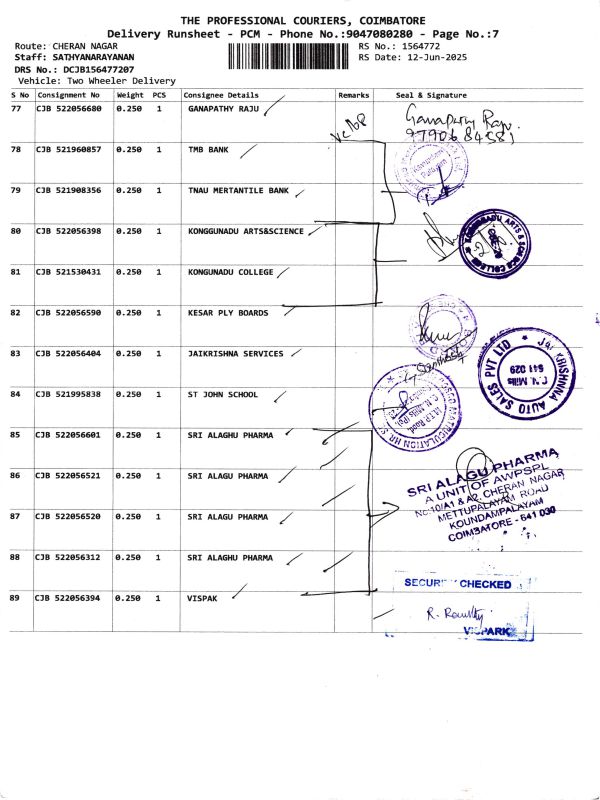 THE PROFESSIONAL COURIERS, COIMBATORE
Delivery Runsheet - PCM - Phone No.:9047080280 - Page No.:7
Route: CHERAN NAGAR
RS No.: 1564772
Staff: SATHYANARAYANAN
RS Date: 12-Jun-2025
DRS No.: DCJB156477207
Vehicle: Two Wheeler Delivery
S No Consignment No Weight PCS Consignee Details Remarks Seal & Signature
77 CJB 522056680 0.250 1 GANAPATHY RAJU
Ganapathy Raju
9790684581
78 CJB 521960857 0.250 1 TMB BANK
79 CJB 521908356 0.250 1 TNAU MERTANTILE BANK
80 CJB 522056398 0.250 1 KONGGUNADU ARTS&SCIENCE
81 CJB 521530431 0.250 1 KONGUNADU COLLEGE
82 CJB 522056590 0.250 1 KESAR PLY BOARDS
83 CJB 522056404 0.250 1 JAIKRISHNA SERVICES
JAI KRISHNA AUTO SALES PVT LTD
G.N. Mills
641 029
84 CJB 521995838 0.250 1 ST JOHN SCHOOL
85 CJB 522056601 0.250 1 SRI ALAGU PHARMA
86 CJB 522056521 0.250 1 SRI ALAGU PHARMA
87 CJB 522056520 0.250 1 SRI ALAGU PHARMA
SRI ALAGU PHARMA
A UNIT OF AWPSPL
No:10/A1 & A2, CHERAN NAGAR
METTUPALAYAM ROAD
KOUNDAMPALAYAM
COIMBATORE - 641 030
88 CJB 522056312 0.250 1 SRI ALAGHU PHARMA
SECURITY CHECKED
89 CJB 522056394 0.250 1 VISPAK
VISPARK